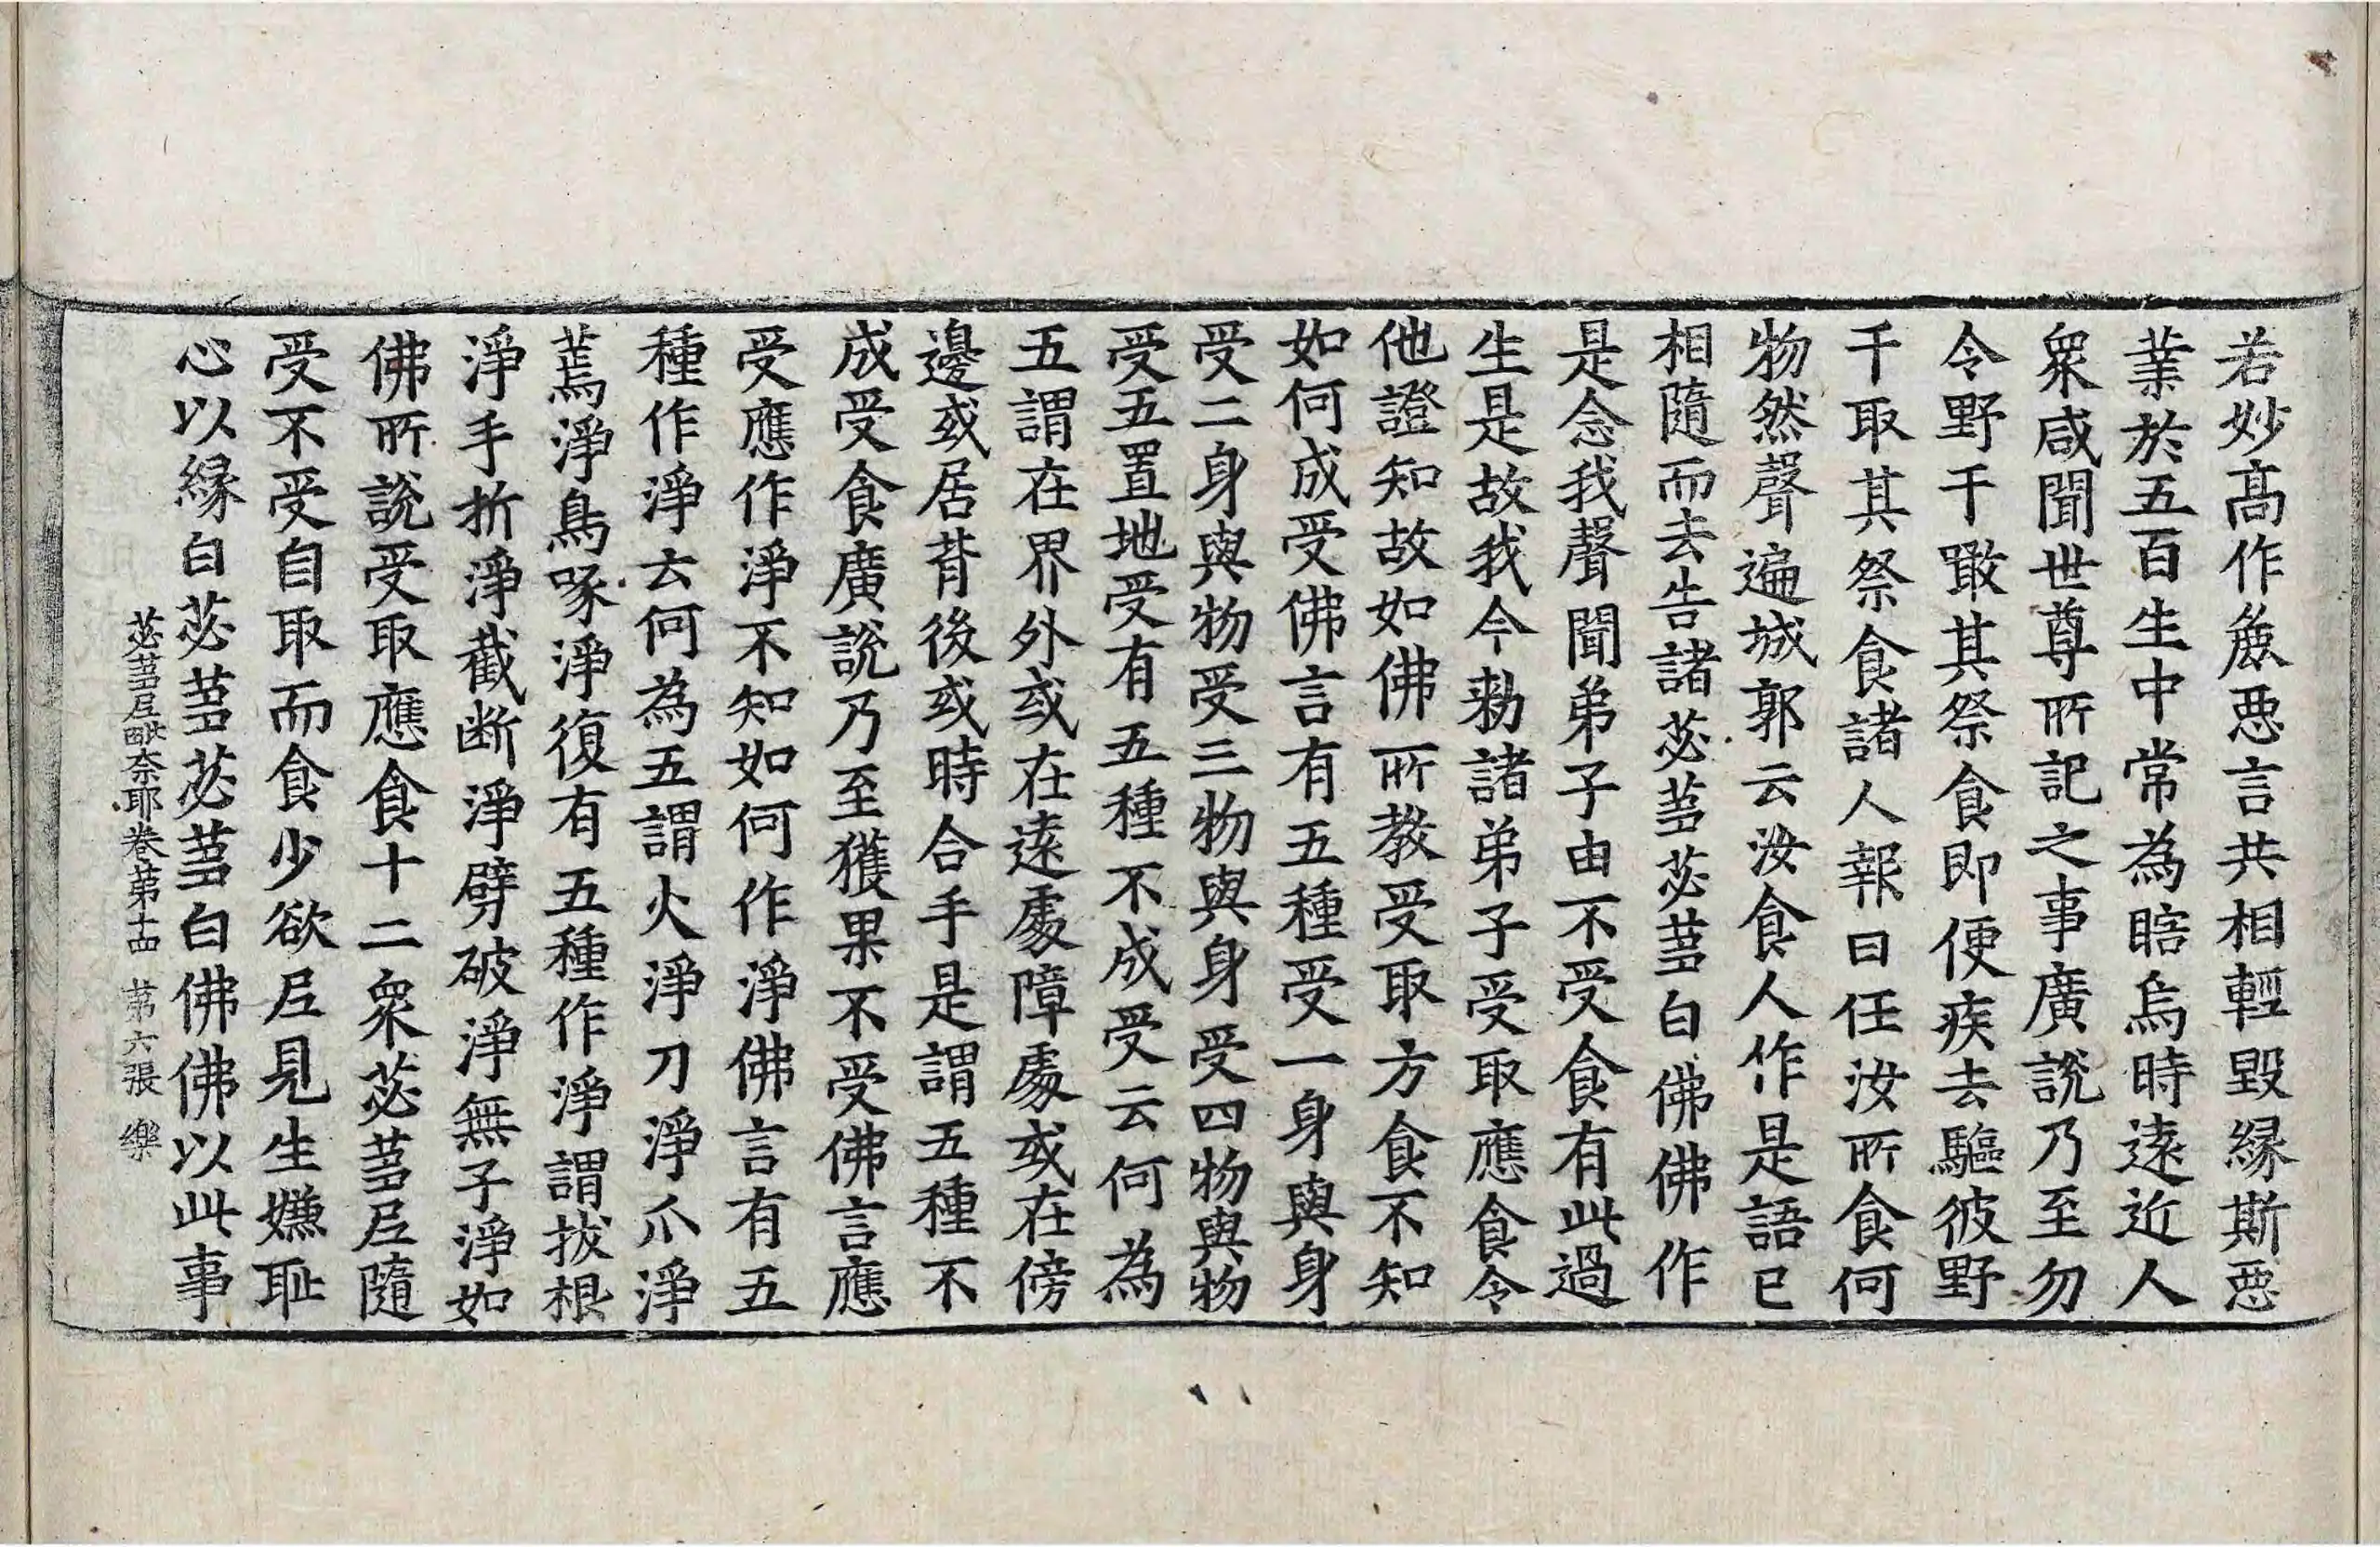 若妙高作麁惡言共相輕毀緣斯惡
業於五百生中常為瞎烏時遠近人
衆咸聞世尊所記之事廣說乃至勿
令野干噉其祭食即便疾去驅彼野
干取其祭食諸人報曰任汝所食何
物然聲遍城郭云汝食人作是語已
相隨而去告諸苾芻苾芻白佛佛作
是念我聲聞弟子由不受食有此過
生是故我今勑諸弟子受取應食令
他證知故如佛所教受取方食不知
如何成受佛言有五種受一身與身
受二身與物受三物與身受四物與物
受五置地受有五種不成受云何為
五謂在界外或在遠處障處或在傍
邊或居背後或時合手是謂五種不
成受食廣說乃至獲果不受佛言應
受應作淨不知如何作淨佛言有五
種作淨云何為五謂火淨刀淨爪淨
蔫淨鳥啄淨復有五種作淨謂拔根
淨手折淨截断淨劈破淨無子淨如
佛所說受取應食十二衆苾芻尼隨
受不受自取而食少欲尼見生嫌耻
心以緣白苾芻苾芻白佛佛以此事
苾芻尼毗奈耶卷第十四 第六張 樂